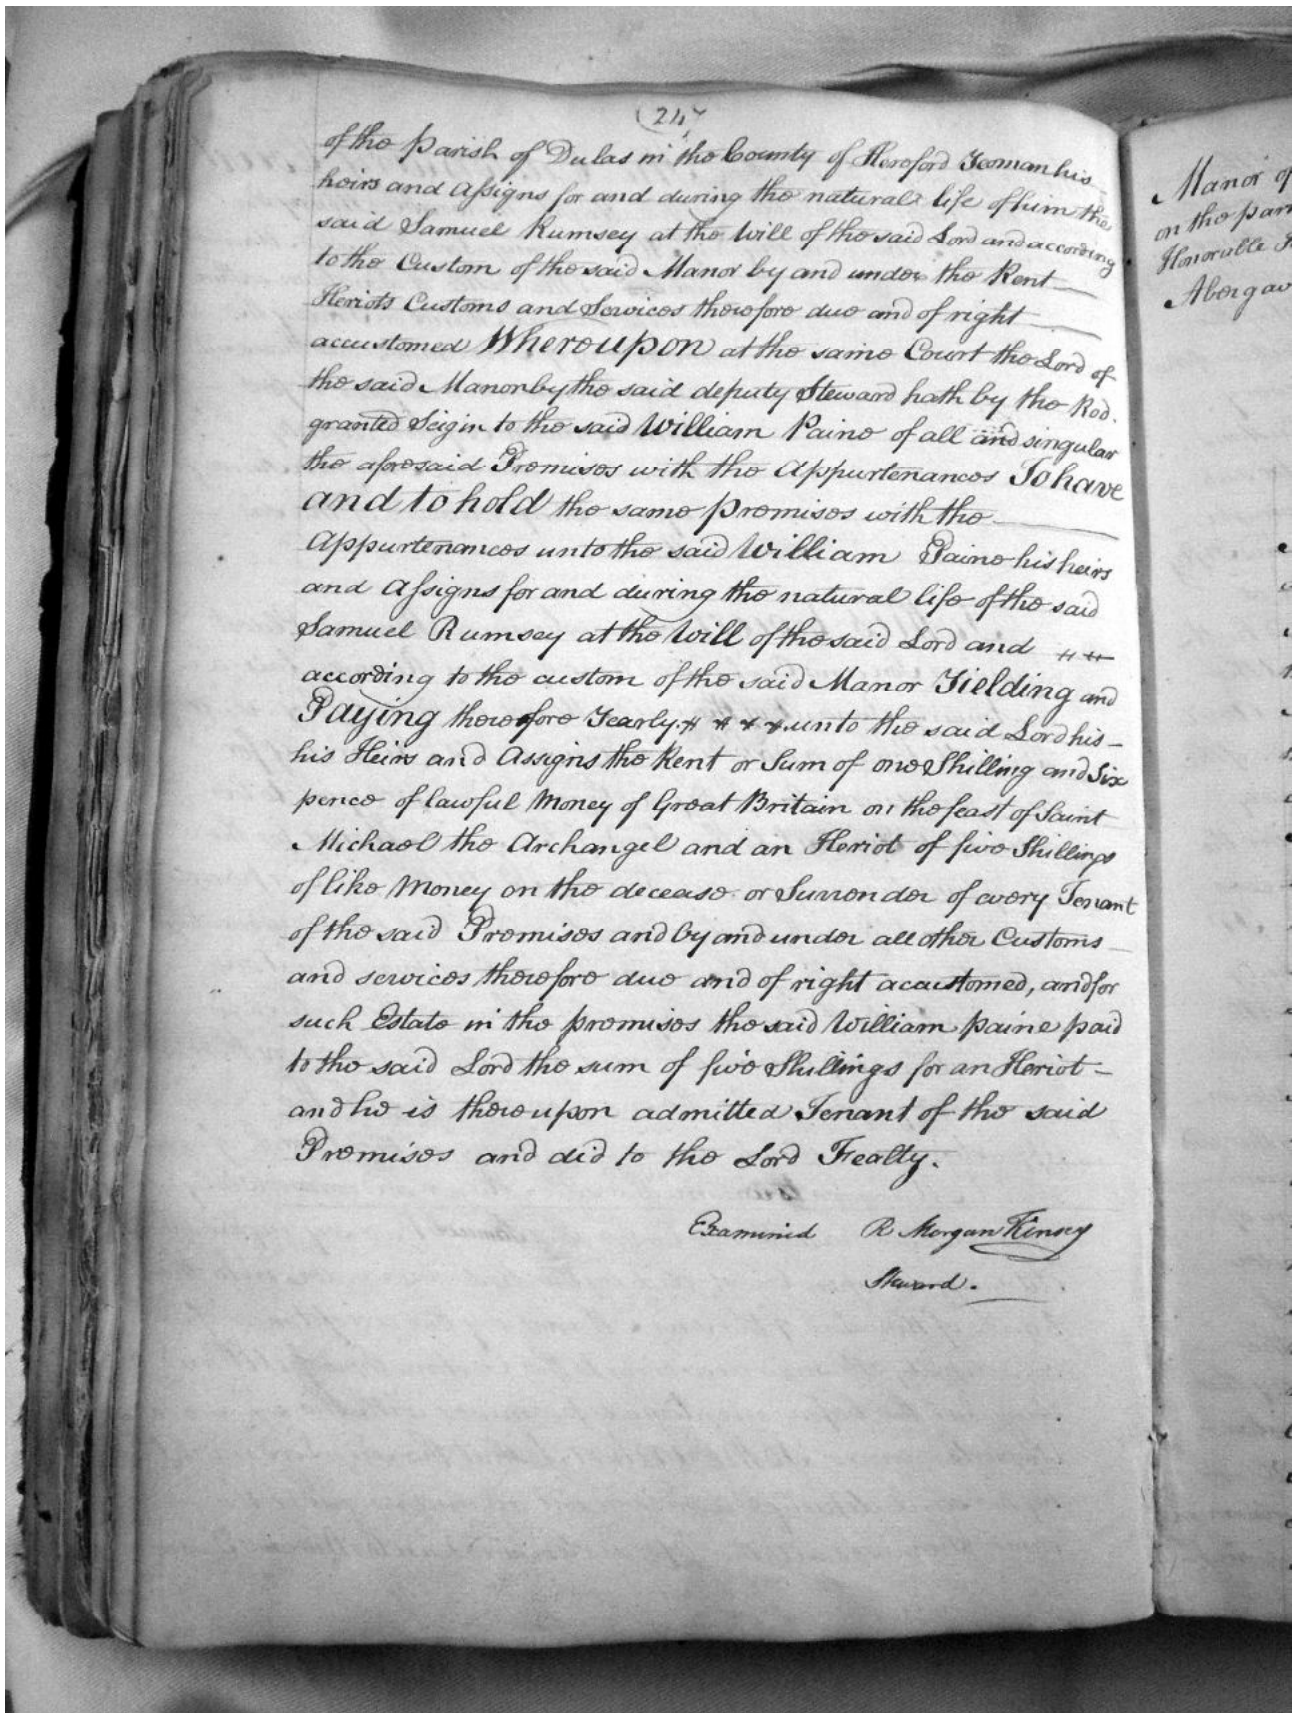 (24
of the parish of Dulas in the County of Hereford Yeoman his
heirs and assigns for and during the natural life of him the
said Samuel Rumsey at the Will of the said Lord and according
to the Custom of the said Manor by and under the Rent
Heriots Customs and Services therefore due and of right
accustomed Whereupon at the same Court the Lord of
the said Manor by the said deputy Steward hath by the Rod
granted Seigin to the said William Paine of all and singular
the aforesaid Premises with the Appurtenances To have
and to hold the same premises with the
Appurtenances unto the said William Paine his heirs
and Assigns for and during the natural life of the said
Samuel Rumsey at the Will of the said Lord and
according to the custom of the said Manor Yielding and
Paying therefore Yearly unto the said Lord his
his Heirs and Assigns the Rent or Sum of one Shilling and Six
pence of lawful Money of Great Britain on the feast of Saint
Michael the Archangel and an Heriot of five Shillings
of like Money on the decease or Surrender of every Tenant
of the said Premises and by and under all other Customs
and services therefore due and of right accustomed, and for
such Estate in the premises the said William paine paid
to the said Lord the sum of five Shillings for an Heriot
and he is thereupon admitted Tenant of the said
Premises and did to the Lord Fealty.
Examined R Morgan Kinsey
Steward.
Manor of
on the par
Honorable
Abergav